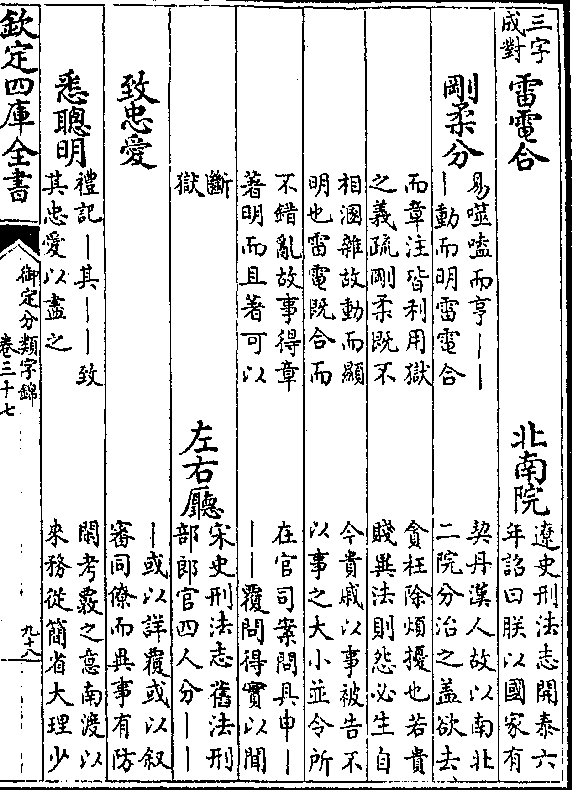 三字
成對
雷電合
北南院
遼史刑法志開泰六
年詔曰朕以國家有
剛柔分
易噬嗑而亨｜｜
｜動而明雷電合
契丹漢人故以南北
二院分治之蓋欲去
而章注皆利用獄
之義疏剛柔既不
貪枉除煩擾也若貴
賤異法則怨必生自
相溷雜故動而顯
明也雷電既合而
今貴戚以事被告不
以事之大小並令所
不錯亂故事得章
著明而且著可以
在官司案問具申｜
｜｜覆問得實以聞
斷
獄
左右廳
宋史刑法志舊法刑
部郎官四人分｜｜
致忠愛
｜或以詳覆或以叙
審同僚而異事有防
悉聰明
禮記｜其｜｜｜致
其忠愛以盡之
閑考覈之意南渡以
来務從簡省大理少
欽定四庫全書
御定分類字錦
卷三十七
九十八